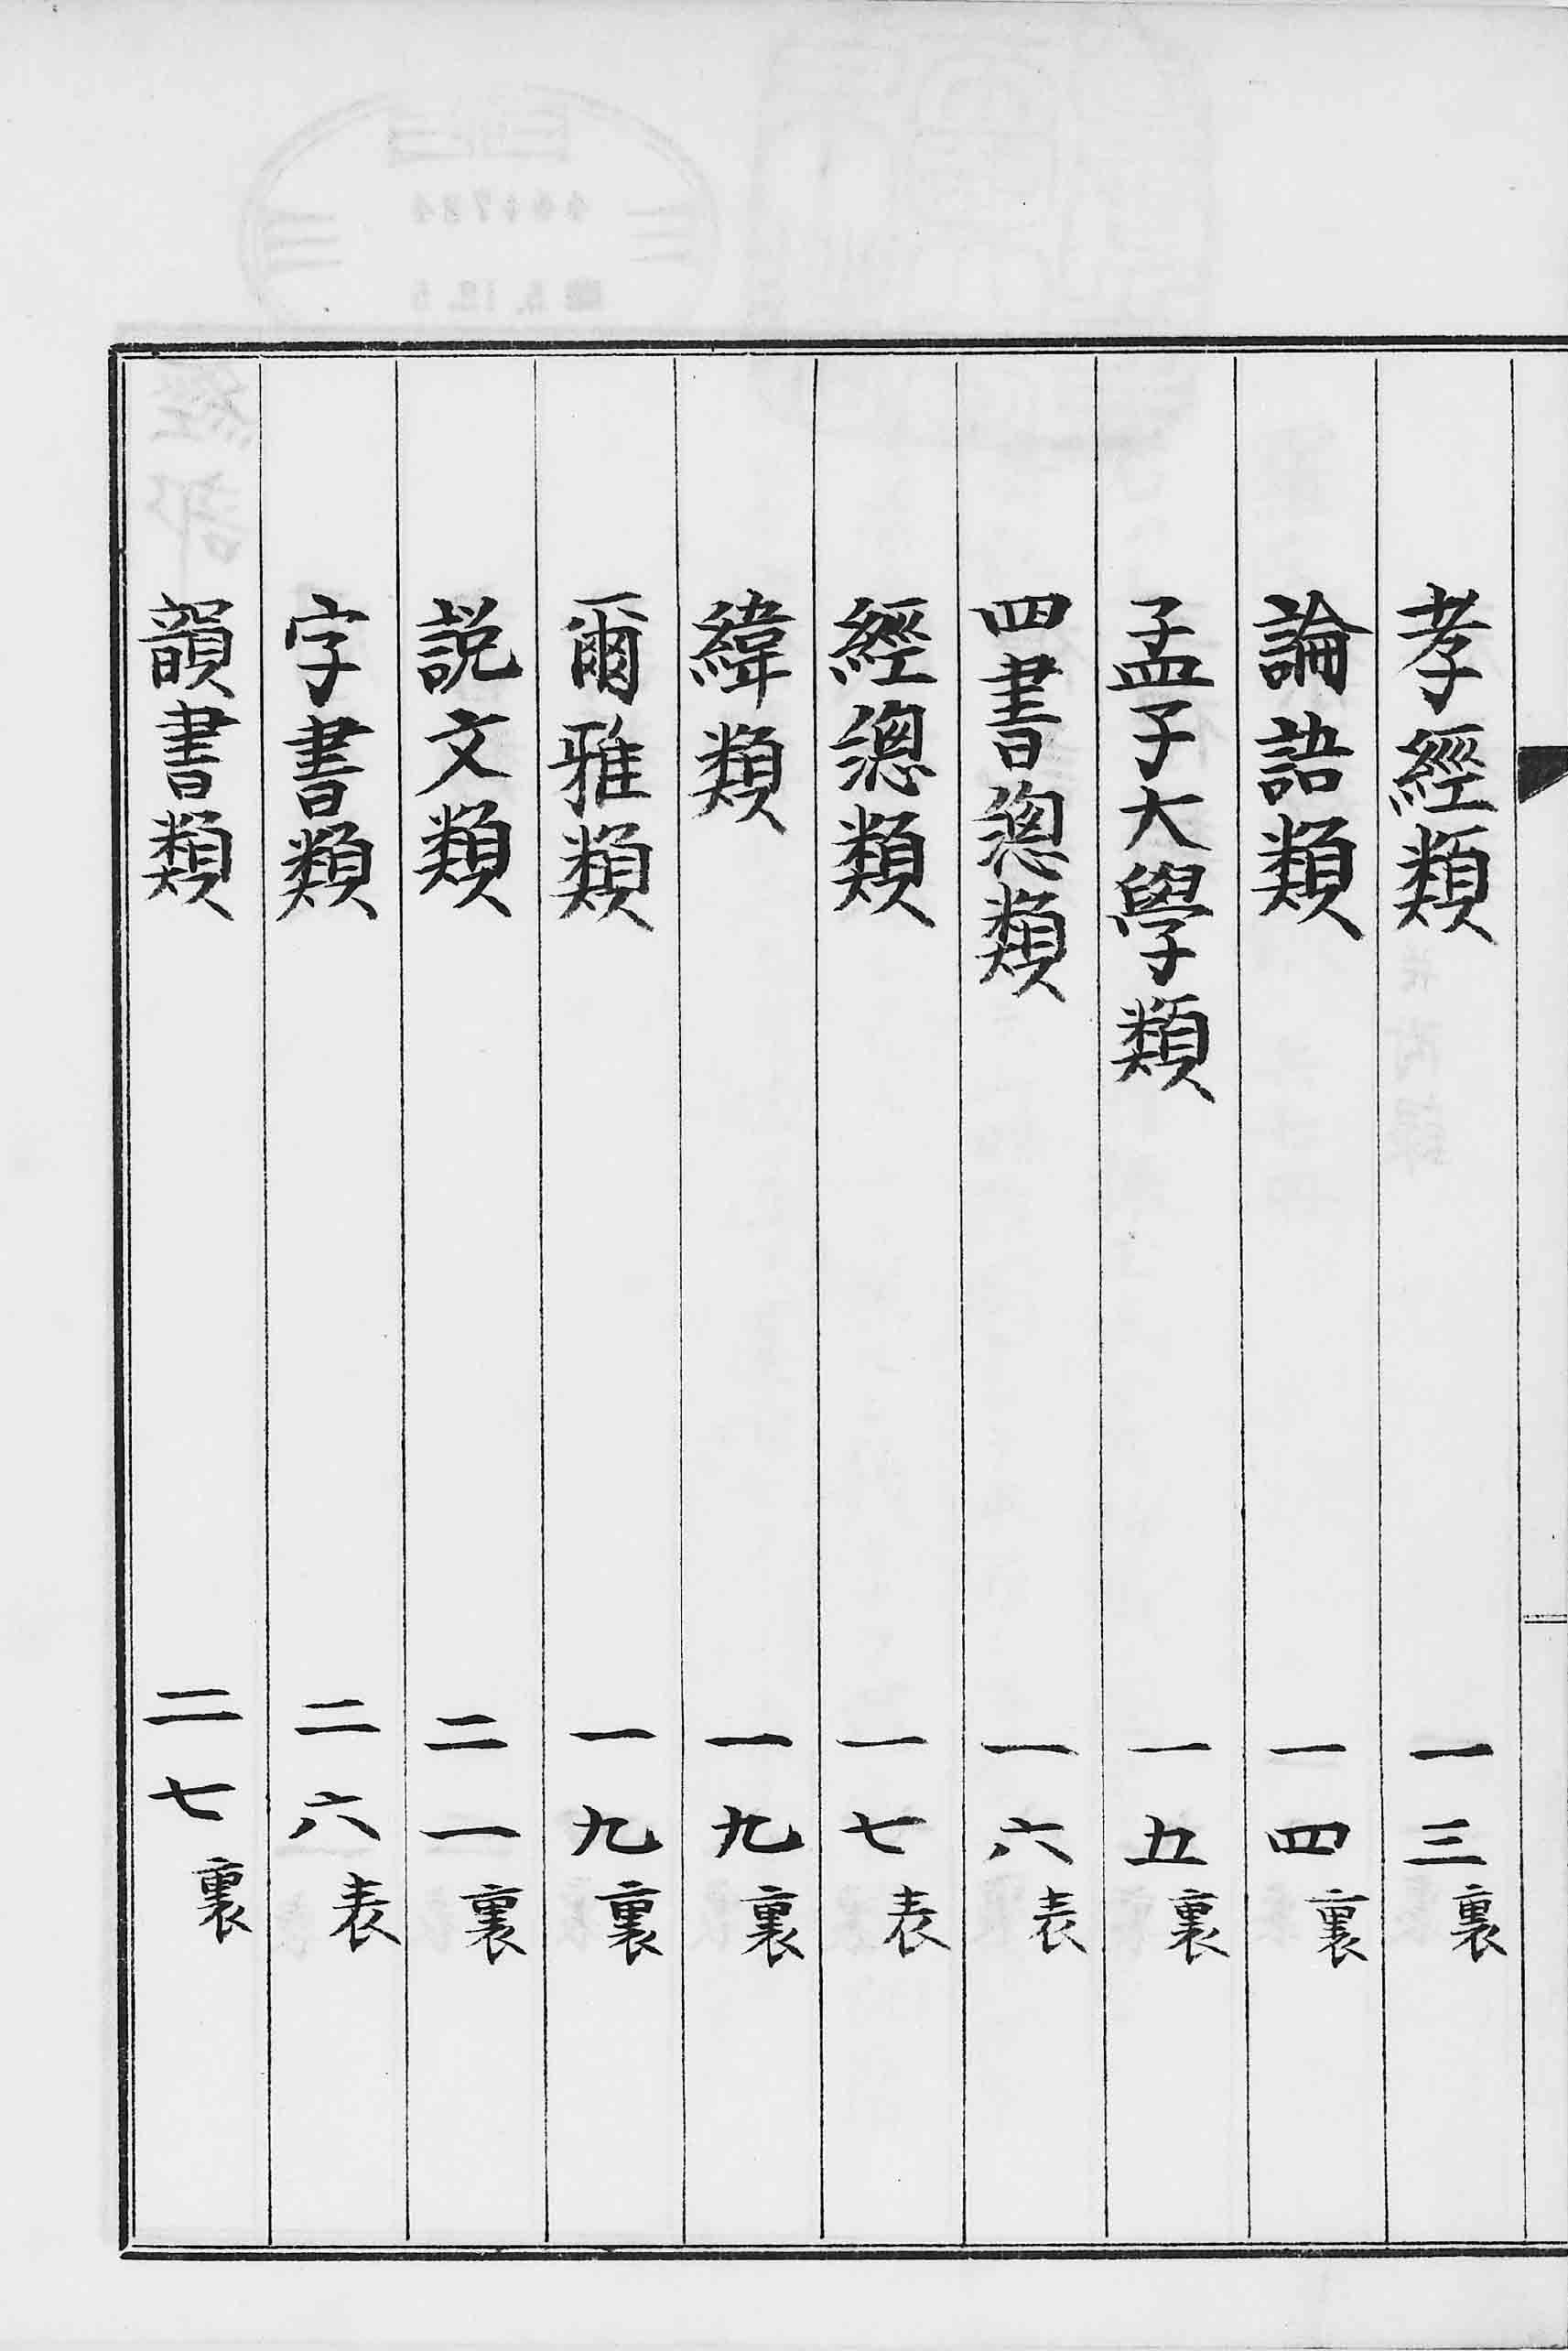 孝經類 一三裏
論語類 一四裏
孟子大學類 一五裏
四書總類 一六表
經總類 一七表
緯類 一九裏
爾雅類 一九裏
説文類 二一裏
字書類 二六表
韻書類 二七裏